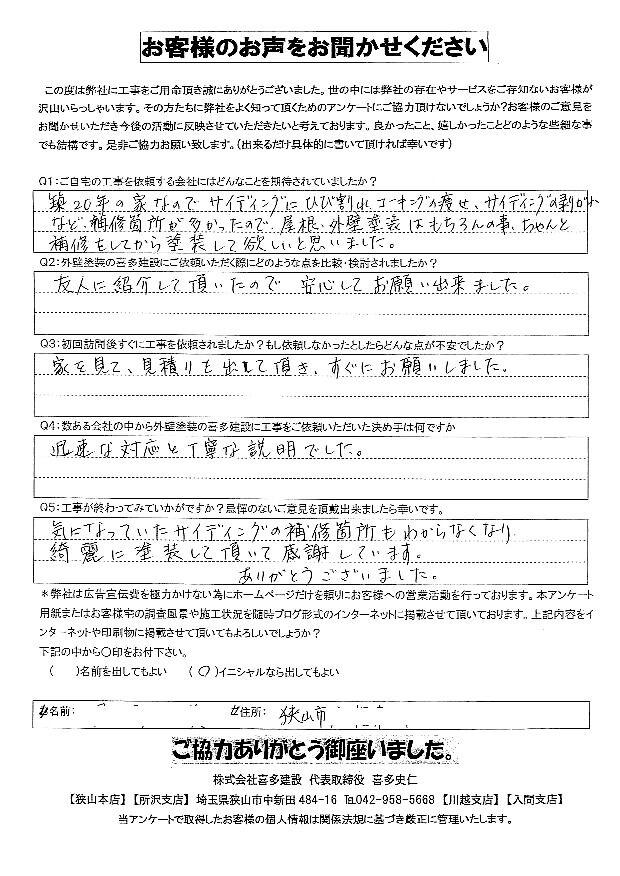 お客様のお声をお聞かせください
この度は弊社に工事をご用命頂き誠にありがとうございました。世の中には弊社の存在やサービスをご存知ないお客様が
沢山いらっしゃいます。その方たちに弊社をよく知って頂くためのアンケートにご協力頂けないでしょうか?お客様のご意見を
お聞かせいただき今後の活動に反映させていただきたいと考えております。良かったこと、嬉しかったことどのような些細な事
でも結構です。是非ご協力お願い致します。(出来るだけ具体的に書いて頂ければ幸いです)
Q1:ご自宅の工事を依頼する会社にはどんなことを期待されていましたか?
築20年の家なのでサイディングにひび割れ、コーキングの痩せ、サイディングの剥がれ
など、補修箇所が多かったので、屋根、外壁塗装はもちろんの事、ちゃんと
補修をしてから塗装して欲しいと思いました。
Q2:外壁塗装の喜多建設にご依頼いただく際にどのような点を比較・検討されましたか?
友人に紹介して頂いたので 安心してお願い出来ました。
Q3:初回訪問後すぐに工事を依頼されましたか?もし依頼しなかったとしたらどんな点が不安でしたか?
家を見て、見積りを出して頂き、すぐにお願いしました。
Q4:数ある会社の中から外壁塗装の喜多建設に工事をご依頼いただいた決め手は何ですか
迅速な対応と丁寧な説明でした。
Q5:工事が終わってみていかがですか?忌憚のないご意見を頂戴出来ましたら幸いです。
気になっていたサイディングの補修箇所もわからなくなり
綺麗に塗装して頂いて感謝しています。
ありがとうございました。
*弊社は広告宣伝費を極力かけない為にホームページだけを頼りにお客様への営業活動を行っております。本アンケート
用紙またはお客様宅の調査風景や施工状況を随時ブログ形式のインターネットに掲載させて頂いております。上記内容をイ
ンターネットや印刷物に掲載させて頂いてもよろしいでしょうか?
下記の中から○印をお付下さい。
( )名前を出してもよい (○)イニシャルなら出してもよい
お名前: ご住所: 狭山市
ご協力ありがとう御座いました。
株式会社喜多建設 代表取締役 喜多史仁
【狭山本店】【所沢支店】 埼玉県狭山市中新田484-16 ℡042-958-5668 【川越支店】【入間支店】
当アンケートで取得したお客様の個人情報は関係法規に基づき厳正に管理いたします。